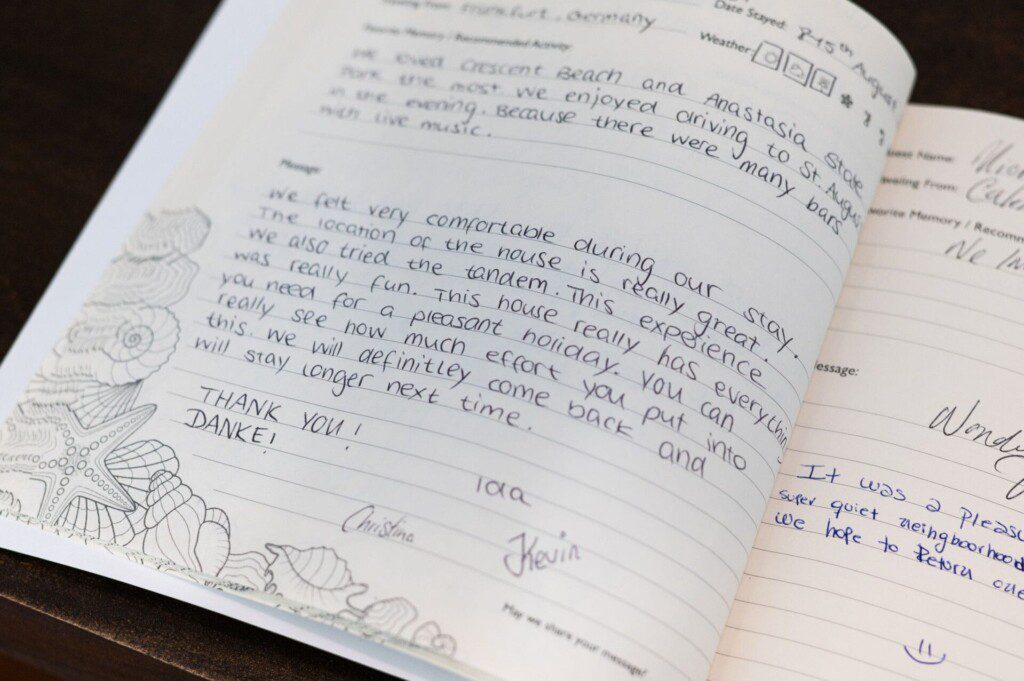 Traveling From: Frankfurt, Germany
Date Stayed: 8-15th August
Weather:
Favorite Memory / Recommended Activity:
We loved Crescent Beach and Anastasia State
Park the most. We enjoyed driving to St. Augus
in the evening. Because there were many bars
with live music.
Message:
We felt very comfortable during our stay.
The location of the house is really great.
We also tried the tandem. This experience
was really fun. This house really has everything
you need for a pleasant holiday. You can
really see how much effort you put into
this. We will definitley come back and
will stay longer next time.
THANK YOU!
DANKE!
Christina
Kevin
May we share your message?
Name:
Traveling From:
Favorite Memory / Recomm
We
Message:
It was a pleasu
super quiet neingboorhood
we hope to Return one